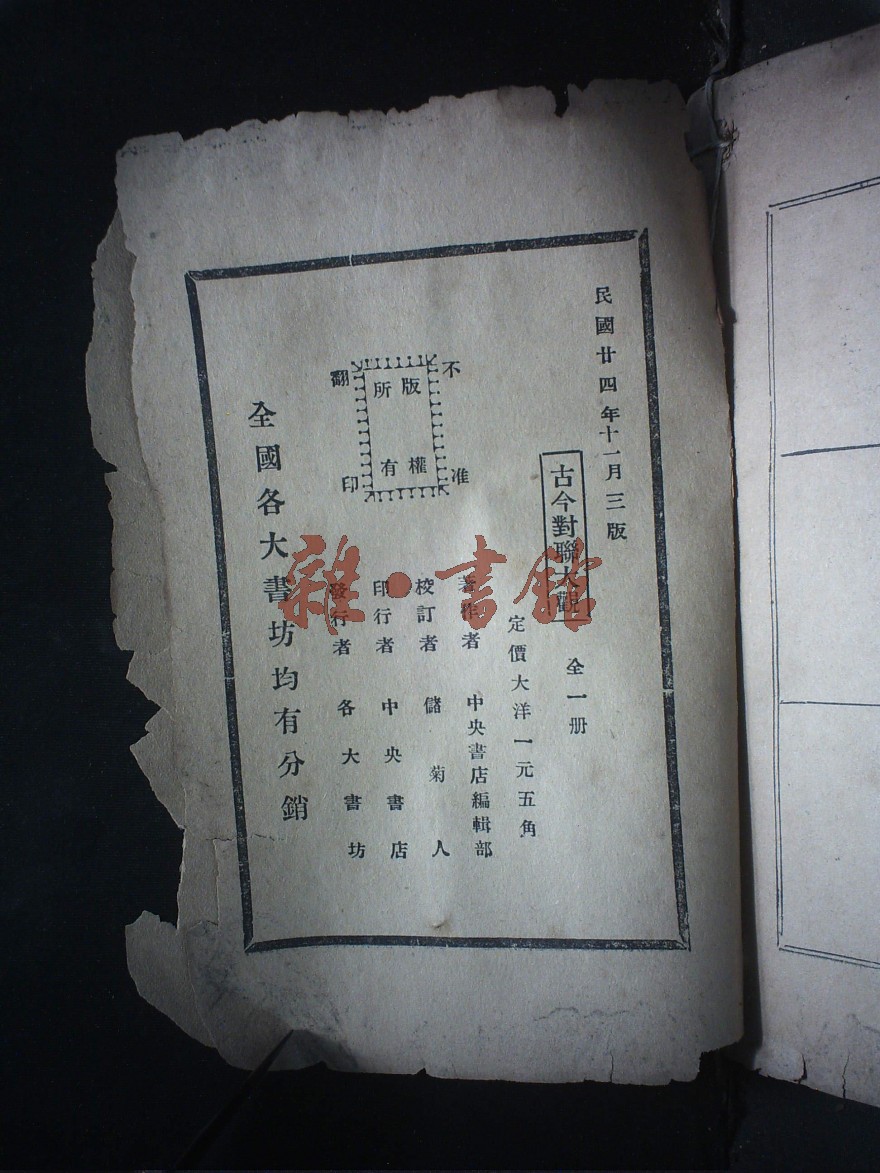 民國廿四年十一月三版
古今對聯大觀 全一册
定價大洋一元五角
著作者 中央書店編輯部
校訂者 儲菊人
印行者 中央書店
發行者 各大書坊
版權所有
不准翻印
全國各大書坊均有分銷
雜·書館